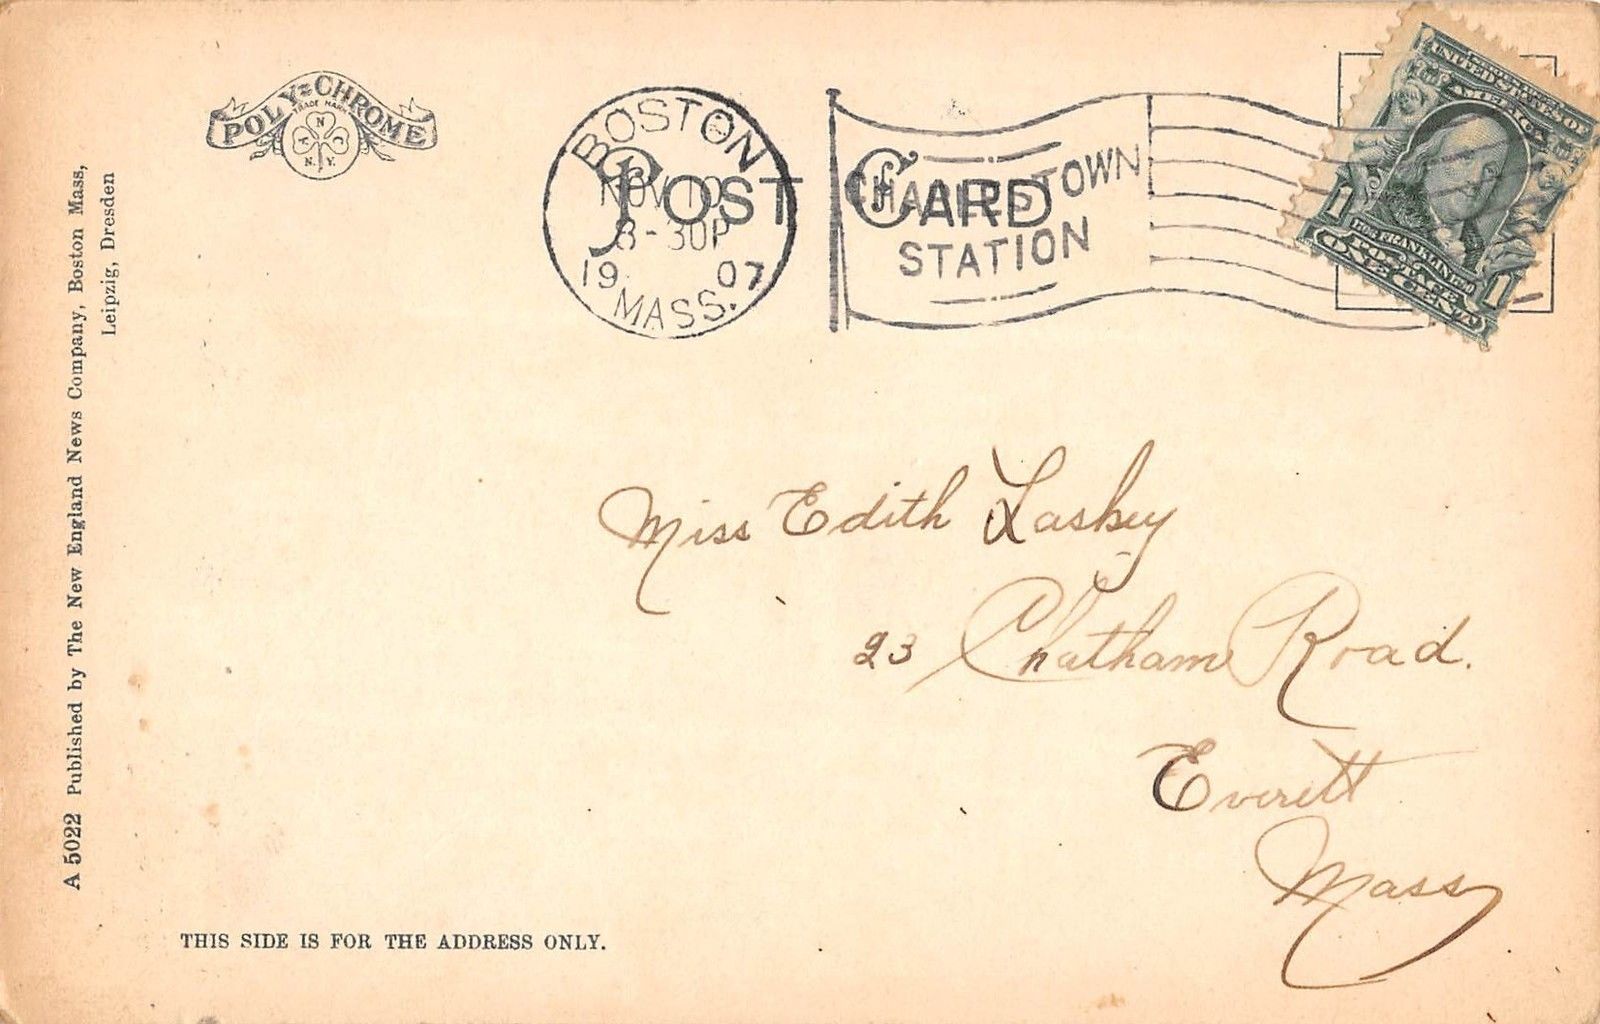 POLY-CHROME
TRADE MARK
N
N.Y.
BOSTON
NOV 10
8-30P
1907
MASS.
POST CARD
CHARLESTOWN
STATION
UNITED STATES OF
AMERICA
1 1
FRANKLIN
POSTAGE
ONE CENT
A 5022 Published by The New England News Company, Boston Mass,
Leipzig, Dresden
Miss Edith Laskey
23 Chatham Road.
Everett
Mass
THIS SIDE IS FOR THE ADDRESS ONLY.